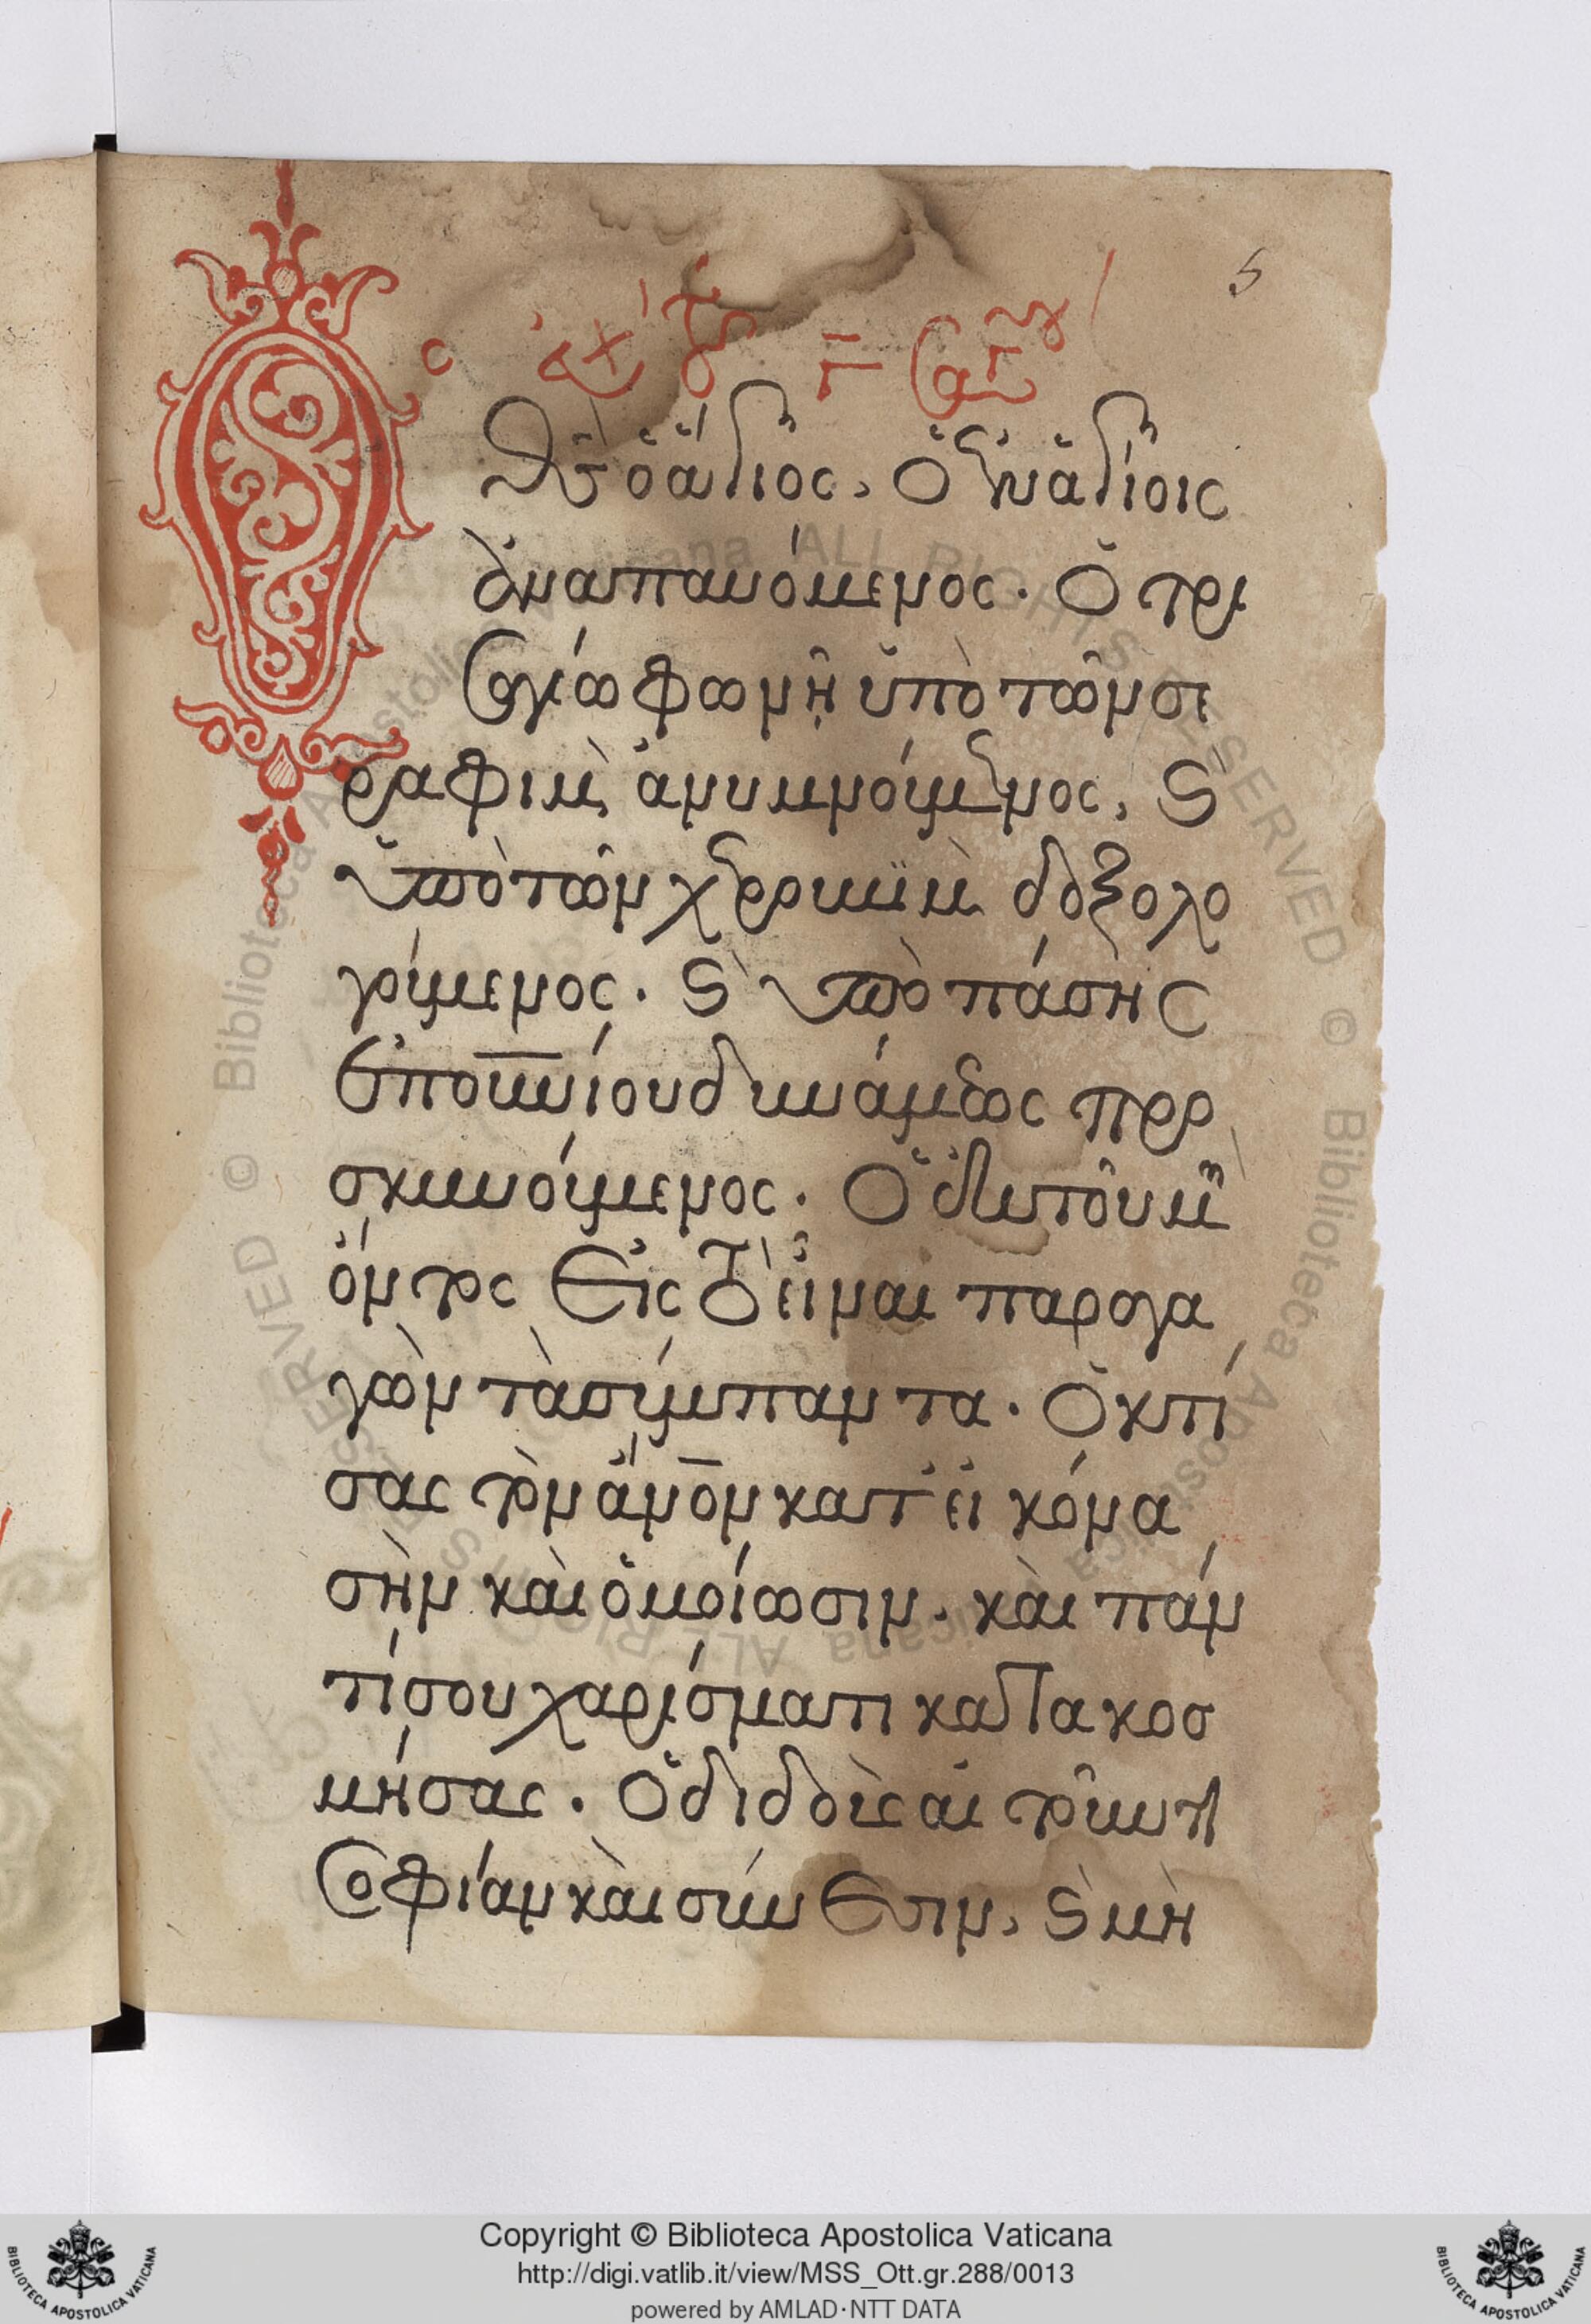 5
εὐχ τοῦ Γ αγίου
Θς ὁ ἅγιος, ὁ ἐν ἁγίοις
ἀναπαυόμενος. ὁ τρι
σαγίω φωνῆ ὑπὸ τῶν σε
ραφιμ ἀνυμνούμενος, ϛ
ὑπὸ τῶν χερουβιμ δοξολο
γούμενος. ϛ ὑπὸ πάσης
ἐπουνίου δυνάμεως προ
σκυνούμενος. ὁ ἐκ τοῦ μὴ
ὄντος εἰς τὸ εἶναι παραγα
γὼν τὰ σύμπαντα. ὁ κτί
σας τὸν ἄνον κατ' εἰκόνα
σὴν καὶ ὁμοίωσιν. καὶ παν
τί σου χαρίσματι κατακοσ
μήσας. ὁ διδοὺς αἰτοῦντι
σοφίαν καὶ σύνεσιν, ϛ μὴ
Copyright © Biblioteca Apostolica Vaticana
http://digi.vatlib.it/view/MSS_Ott.gr.288/0013
powered by AMLAD·NTT DATA
BIBLIOTECA APOSTOLICA VATICANA
BIBLIOTECA APOSTOLICA VATICANA